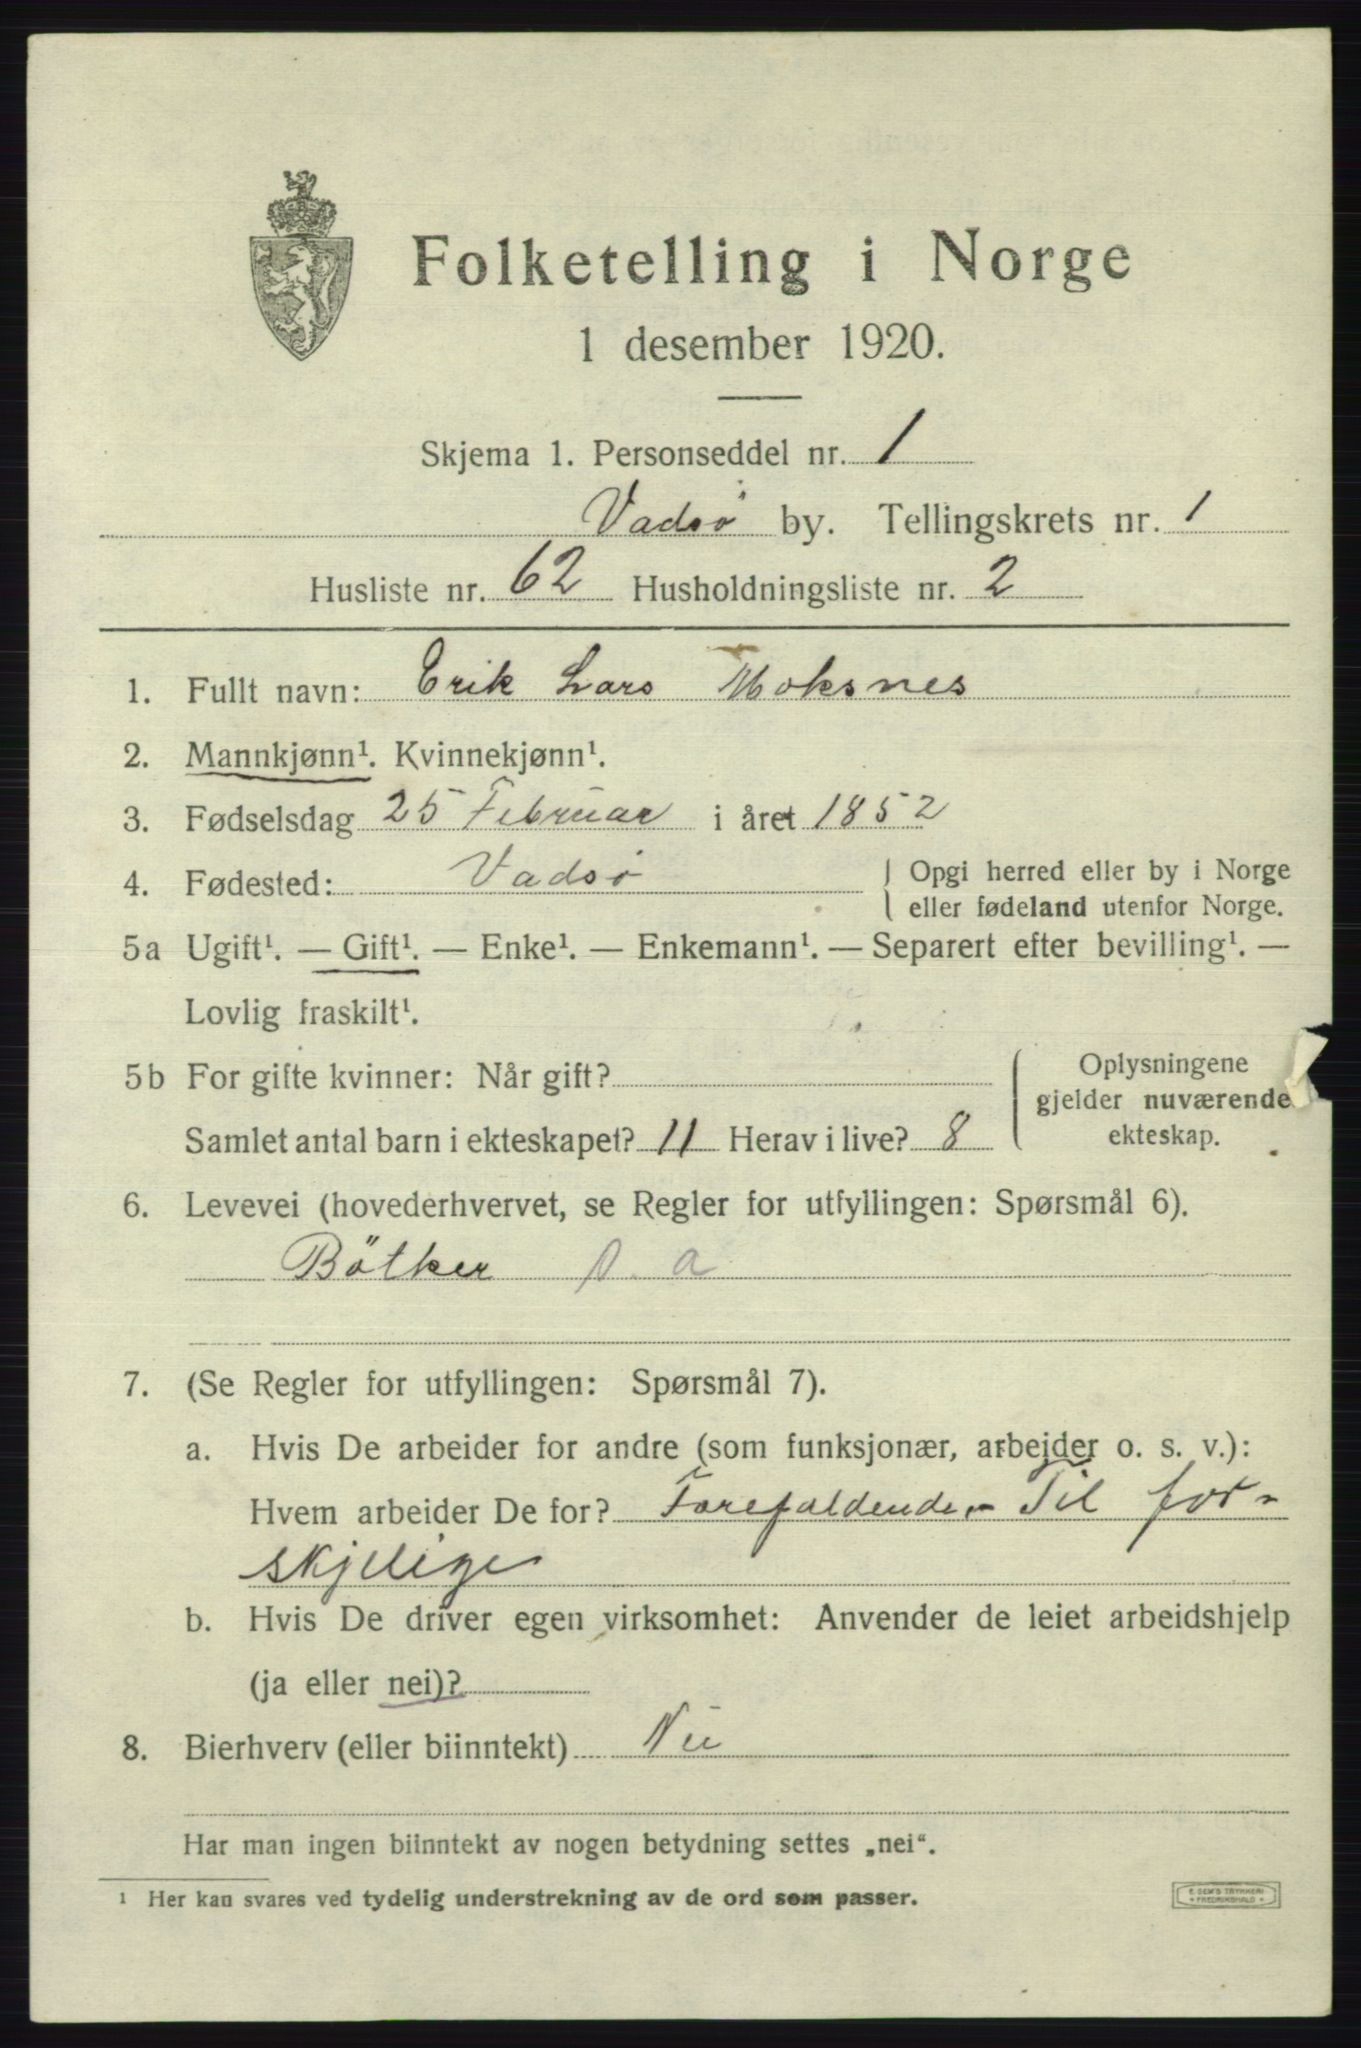 Folketelling i Norge
1 desember 1920.
Skjema 1. Personseddel nr. 1
Vadsø by. Tellingskrets nr. 1
Husliste nr. 62 Husholdningsliste nr. 2
1. Fullt navn: Erik Lars Moksnes
2. Mannkjønn¹. Kvinnekjønn¹.
3. Fødselsdag 25 Februar i året 1852
4. Fødested: Vadsø
Opgi herred eller by i Norge
eller fødeland utenfor Norge.
5a Ugift¹. — Gift¹. — Enke¹. — Enkemann¹. — Separert efter bevilling¹. —
Lovlig fraskilt¹.
5b For gifte kvinner: Når gift?
Samlet antal barn i ekteskapet? 11 Herav i live? 8
Oplysningene
gjelder nuværende
ekteskap.
6. Levevei (hovederhvervet, se Regler for utfyllingen: Spørsmål 6).
Bötker a
7. (Se Regler for utfyllingen: Spørsmål 7).
a. Hvis De arbeider for andre (som funksjonær, arbeider o. s. v.):
Hvem arbeider De for? Forefaldende, Til for-
skjelige
b. Hvis De driver egen virksomhet: Anvender de leiet arbeidshjelp
(ja eller nei)?
8. Bierhverv (eller biinntekt) Nei
Har man ingen biinntekt av nogen betydning settes „nei“.
¹ Her kan svares ved tydelig understrekning av de ord som passer.
E. SEM'S TRYKKERI
FREDRIKSHALD